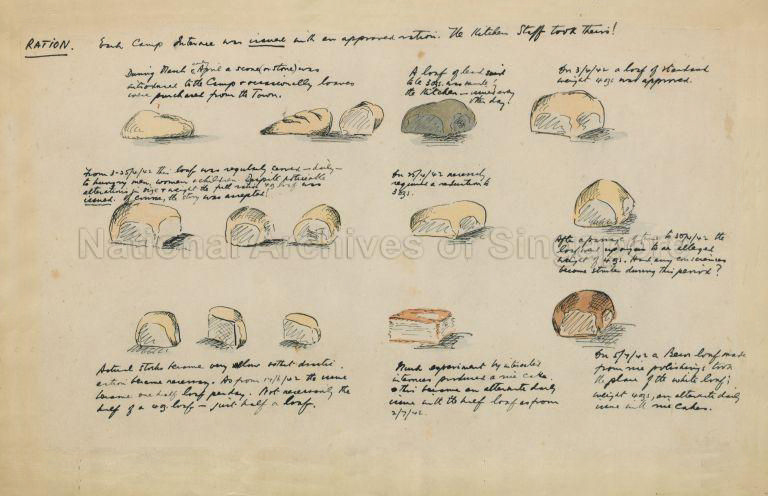 RATION. Each Camp Internee was issued with an approved ration. The Kitchen Staff took theirs!
During March & April a scone (or stone) was
introduced to the Camp & occasionally loaves
were purchased from the Town.
A loaf of lead
to be 3 ozs. was made by
the Kitchen — issued every
other day!
On 3/4/42 a loaf of standard
weight 4 ozs was approved.
From 3-25/4/42 this loaf was regularly issued — daily —
to hungry men, women & children. Despite noticeable
alterations in size & weight the full ration 4 oz loaf was
issued. Of course, the story was accepted!
On 25/4/42 necessity
required a reduction to
3 ozs.
After a period of time to 30/4/42 the
loaf was again to an alleged
weight of 4 ozs. Had any consciences
become stricken during this period?
National Archives of Singapore
Actual stocks became very low so that
action became necessary. As from 14/6/42 the issue
became one half loaf per day. Not necessarily the
half of a 4 oz. loaf — just half a loaf.
Much experiment by interested
internees produced a rice cake.
This became an alternate daily
issue with the half loaf as from
2/7/42.
On 5/7/42 a Brown loaf made
from rice polishings took
the place of the white loaf;
weight 4 ozs, an alternate daily
issue with rice cakes.